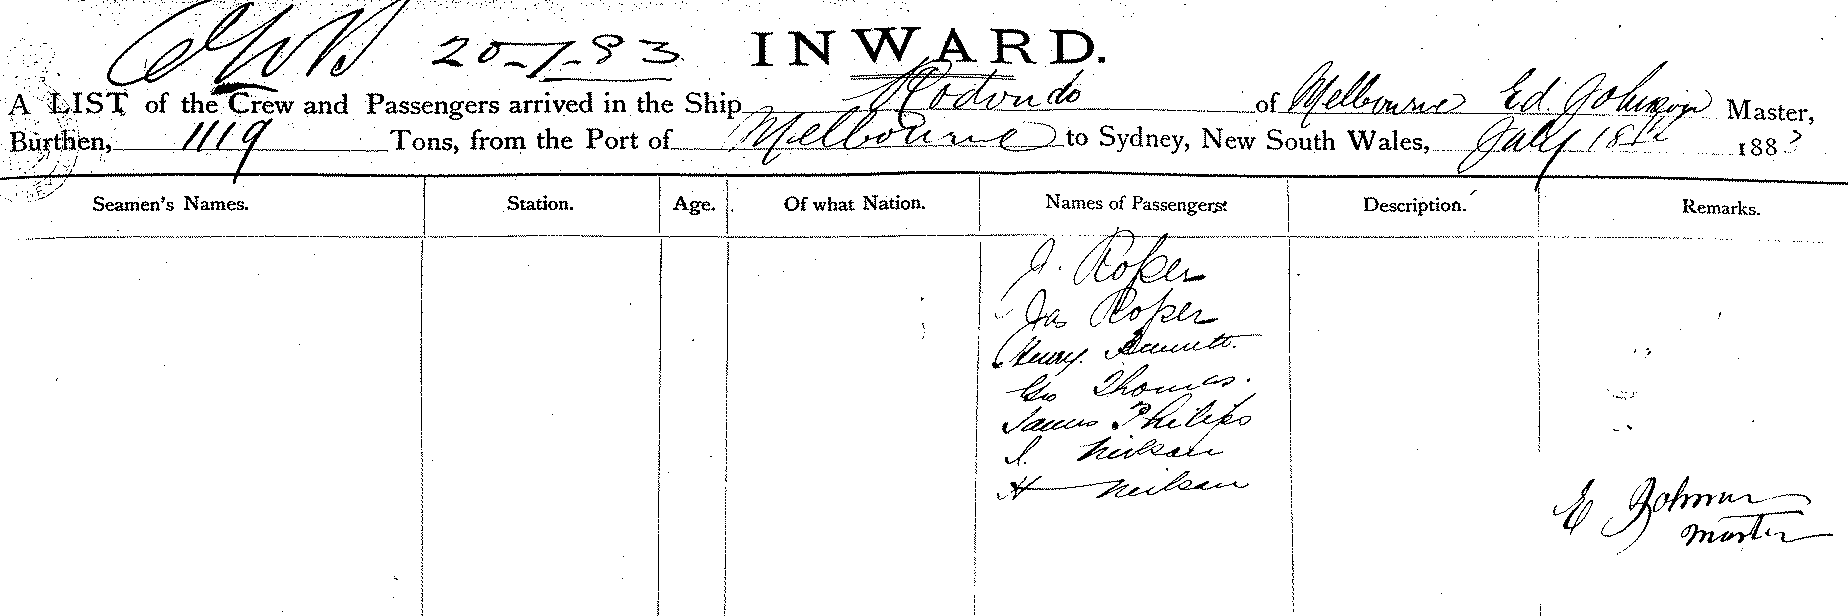 20-7-83 INWARD.
A LIST of the Crew and Passengers arrived in the Ship Rodondo of Melbourne Ed. Johnson Master,
Burthen, 1119 Tons, from the Port of Melbourne to Sydney, New South Wales, July 18th 1883
Seamen's Names. Station. Age. Of what Nation. Names of Passengers: Description. Remarks.
J. Roper
Jas Roper
Henry. Bennett.
Geo Thomas.
James Philips
Neilsen
H Neilsen
E Johnson
master